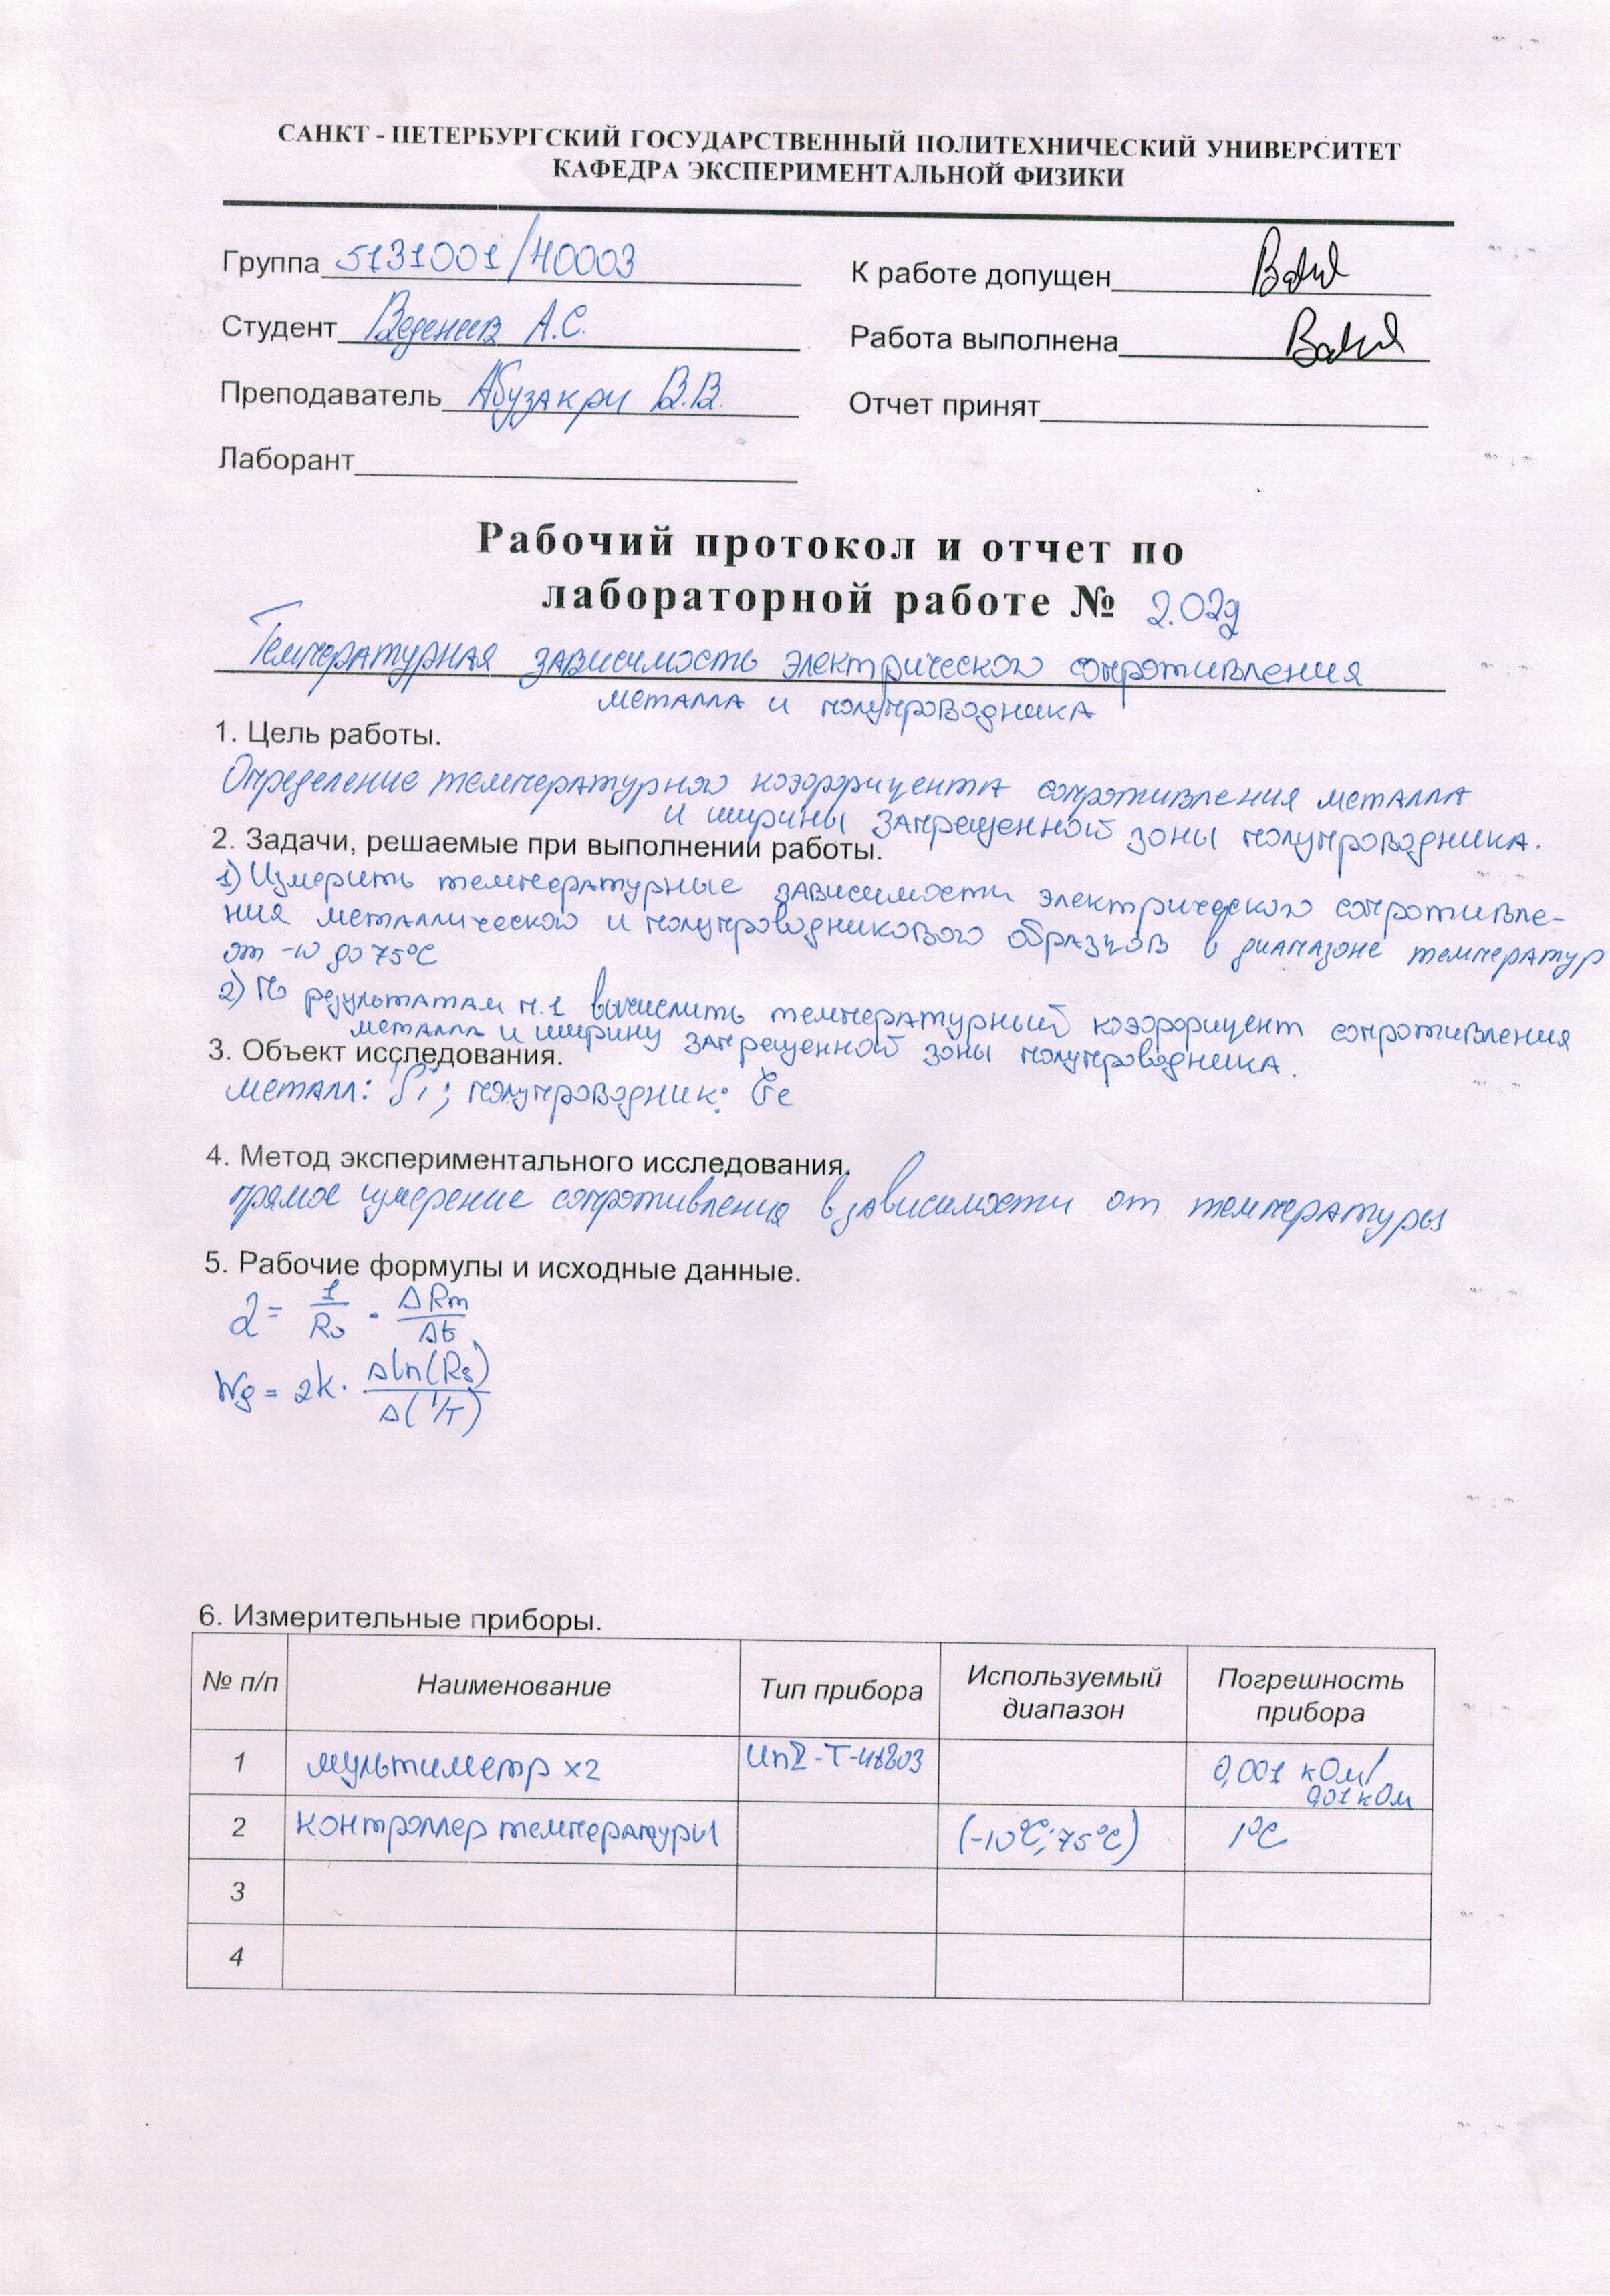 САНКТ - ПЕТЕРБУРГСКИЙ ГОСУДАРСТВЕННЫЙ ПОЛИТЕХНИЧЕСКИЙ УНИВЕРСИТЕТ
КАФЕДРА ЭКСПЕРИМЕНТАЛЬНОЙ ФИЗИКИ
Группа 5131001/40003
К работе допущен
Студент Веденеев А.С.
Работа выполнена
Преподаватель Абузакри В.В.
Отчет принят
Лаборант
Рабочий протокол и отчет по
лабораторной работе № 2.02д
Температурная зависимость электрического сопротивления
металла и полупроводника
1. Цель работы.
Определение температурного коэффициента сопротивления металла
и ширины запрещенной зоны полупроводника.
2. Задачи, решаемые при выполнении работы.
1) Измерить температурные зависимости электрического сопротивле-
ния металлического и полупроводникового образцов в диапазоне температур
от -10 до 75°С
2) По результатам п.1 вычислить температурный коэффициент сопротивления
металла и ширину запрещенной зоны полупроводника.
3. Объект исследования.
металл: ; полупроводник: Ge
4. Метод экспериментального исследования.
прямое измерение сопротивления в зависимости от температуры
5. Рабочие формулы и исходные данные.
α = 1/R₀ · ΔRm/Δt
Wg = 2k · Δln(Rs)/Δ(1/T)
6. Измерительные приборы.
№ п/п Наименование Тип прибора Используемый диапазон Погрешность прибора
1 мультиметр x2 0,001 кОм/ 0,01 кОм
2 контроллер температуры (-10°С; 75°С) 1°С
3
4